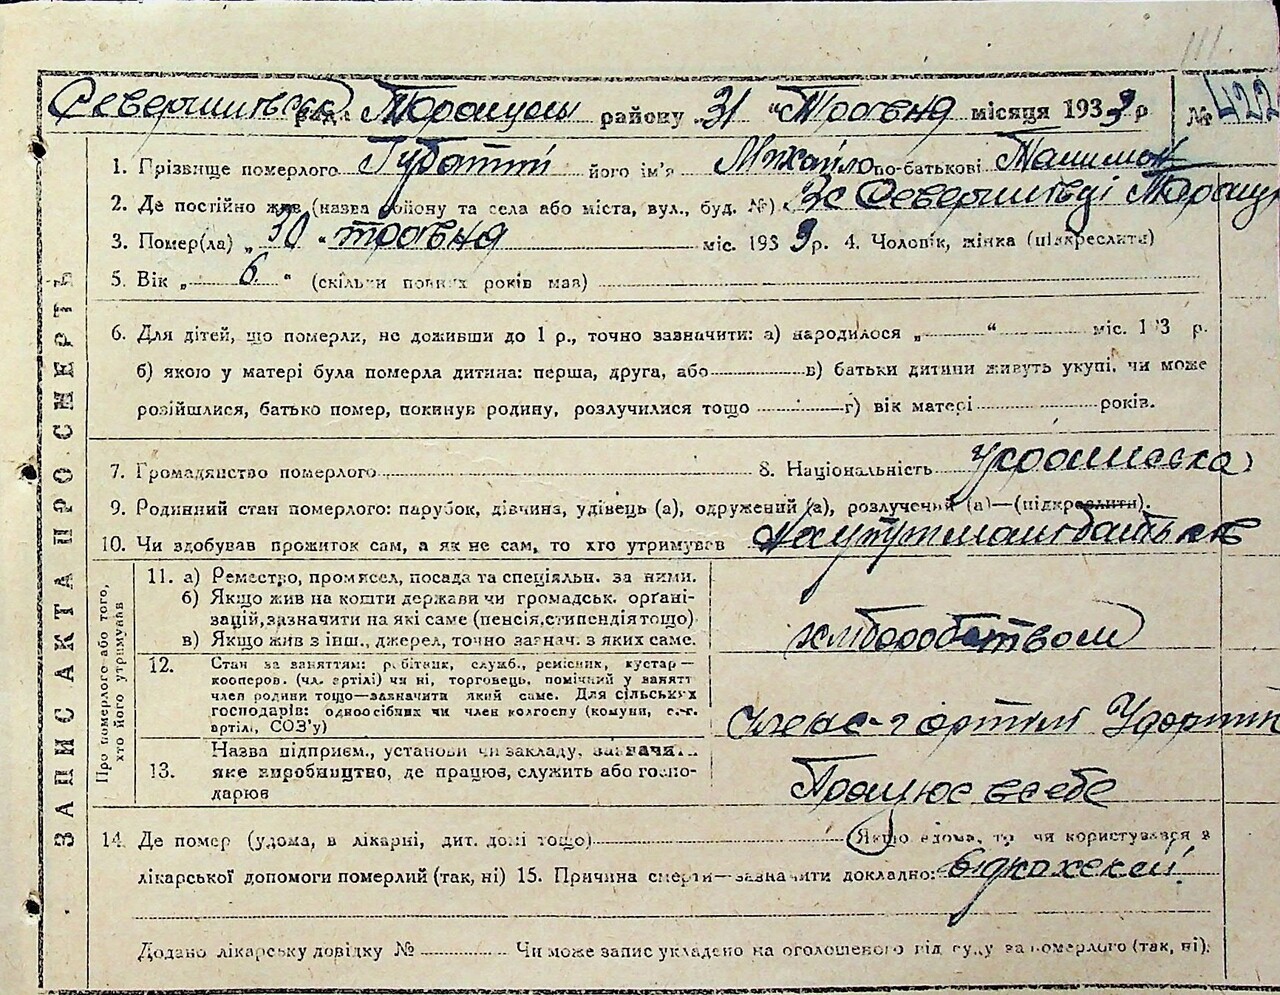 111.
рада району 31 "Травня місяця 1933 р № 422
1. Прізвище померлого його ім'я Михайло по-батькові
2. Де постійно жив (назва району та села або міста, вул., буд. №)
3. Помер(ла) „ 30 " травня міс. 1933 р. 4. Чоловік, жінка (підкреслити)
5. Вік „ 6 " (скільки повних років мав)
6. Для дітей, що померли, не доживши до 1 р., точно зазначити: а) народилося „ " міс. 193 р.
б) якою у матері була померла дитина: перша, друга, або в) батьки дитини живуть укупі, чи може
розійшлися, батько помер, покинув родину, розлучилися тощо г) вік матері років.
7. Громадянство померлого 8. Національність українська
9. Родинний стан померлого: парубок, дівчина, удівець (а), одружений (а), розлучений (а)—(підкреслити).
10. Чи здобував прожиток сам, а як не сам, то хто утримував
ЗАПИС АКТА ПРО СМЕРТЬ
Про померлого або того,
хто його утримував
11. а) Ремество, промисел, посада та спеціяльн. за ними.
б) Якщо жив на кошти держави чи громадськ. організацій,
зазначити на які саме (пенсія, стипендія тощо)
в) Якщо жив з інш., джерел, точно зазнач. з яких саме.
хліборобством
12. Стан за заняттям: робітник, служб., ремісник, кустар—
кооперов. (чл. артілі) чи ні, торговець, помічний у занятті
член родини тощо—зазначити який саме. Для сільських
господарів: одноосібник чи член колгоспу (комуни, с.-г.
артілі, СОЗ'у)
13. Назва підприєм., установи чи закладу, зазначити
яке виробництво, де працює, служить або госпо-
дарює
Працює в себе
14. Де помер (удома, в лікарні, дит. домі тощо) Якщо вдома, то чи користувався з
лікарської допомоги померлий (так, ні) 15. Причина смерти—зазначити докладно:
Додано лікарську довідку № Чи може запис укладено на оголошеного від суду за померлого (так, ні).